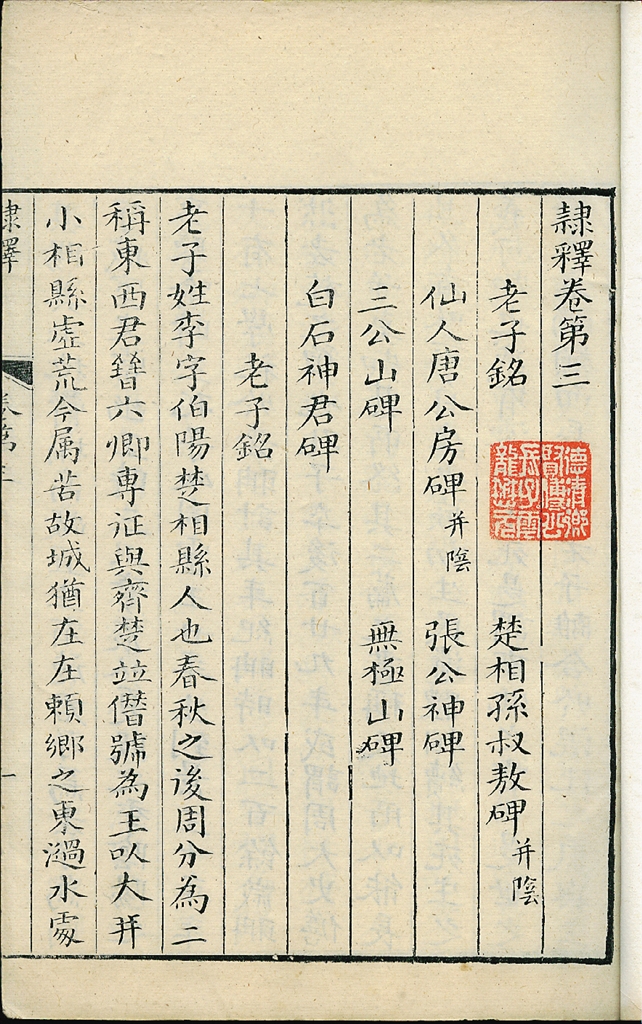 隷釋卷第三
老子銘 楚相孫叔敖碑并陰
仙人唐公房碑并陰 張公神碑
三公山碑 無極山碑
白石神君碑
老子銘
老子姓李字伯陽楚相縣人也春秋之後周分為二
稱東西君晉六卿專征與齊楚並僣號為王以大并
小相縣虛荒今属苦故城猶在在賴鄉之東濄水處
隷釋 卷第三 一